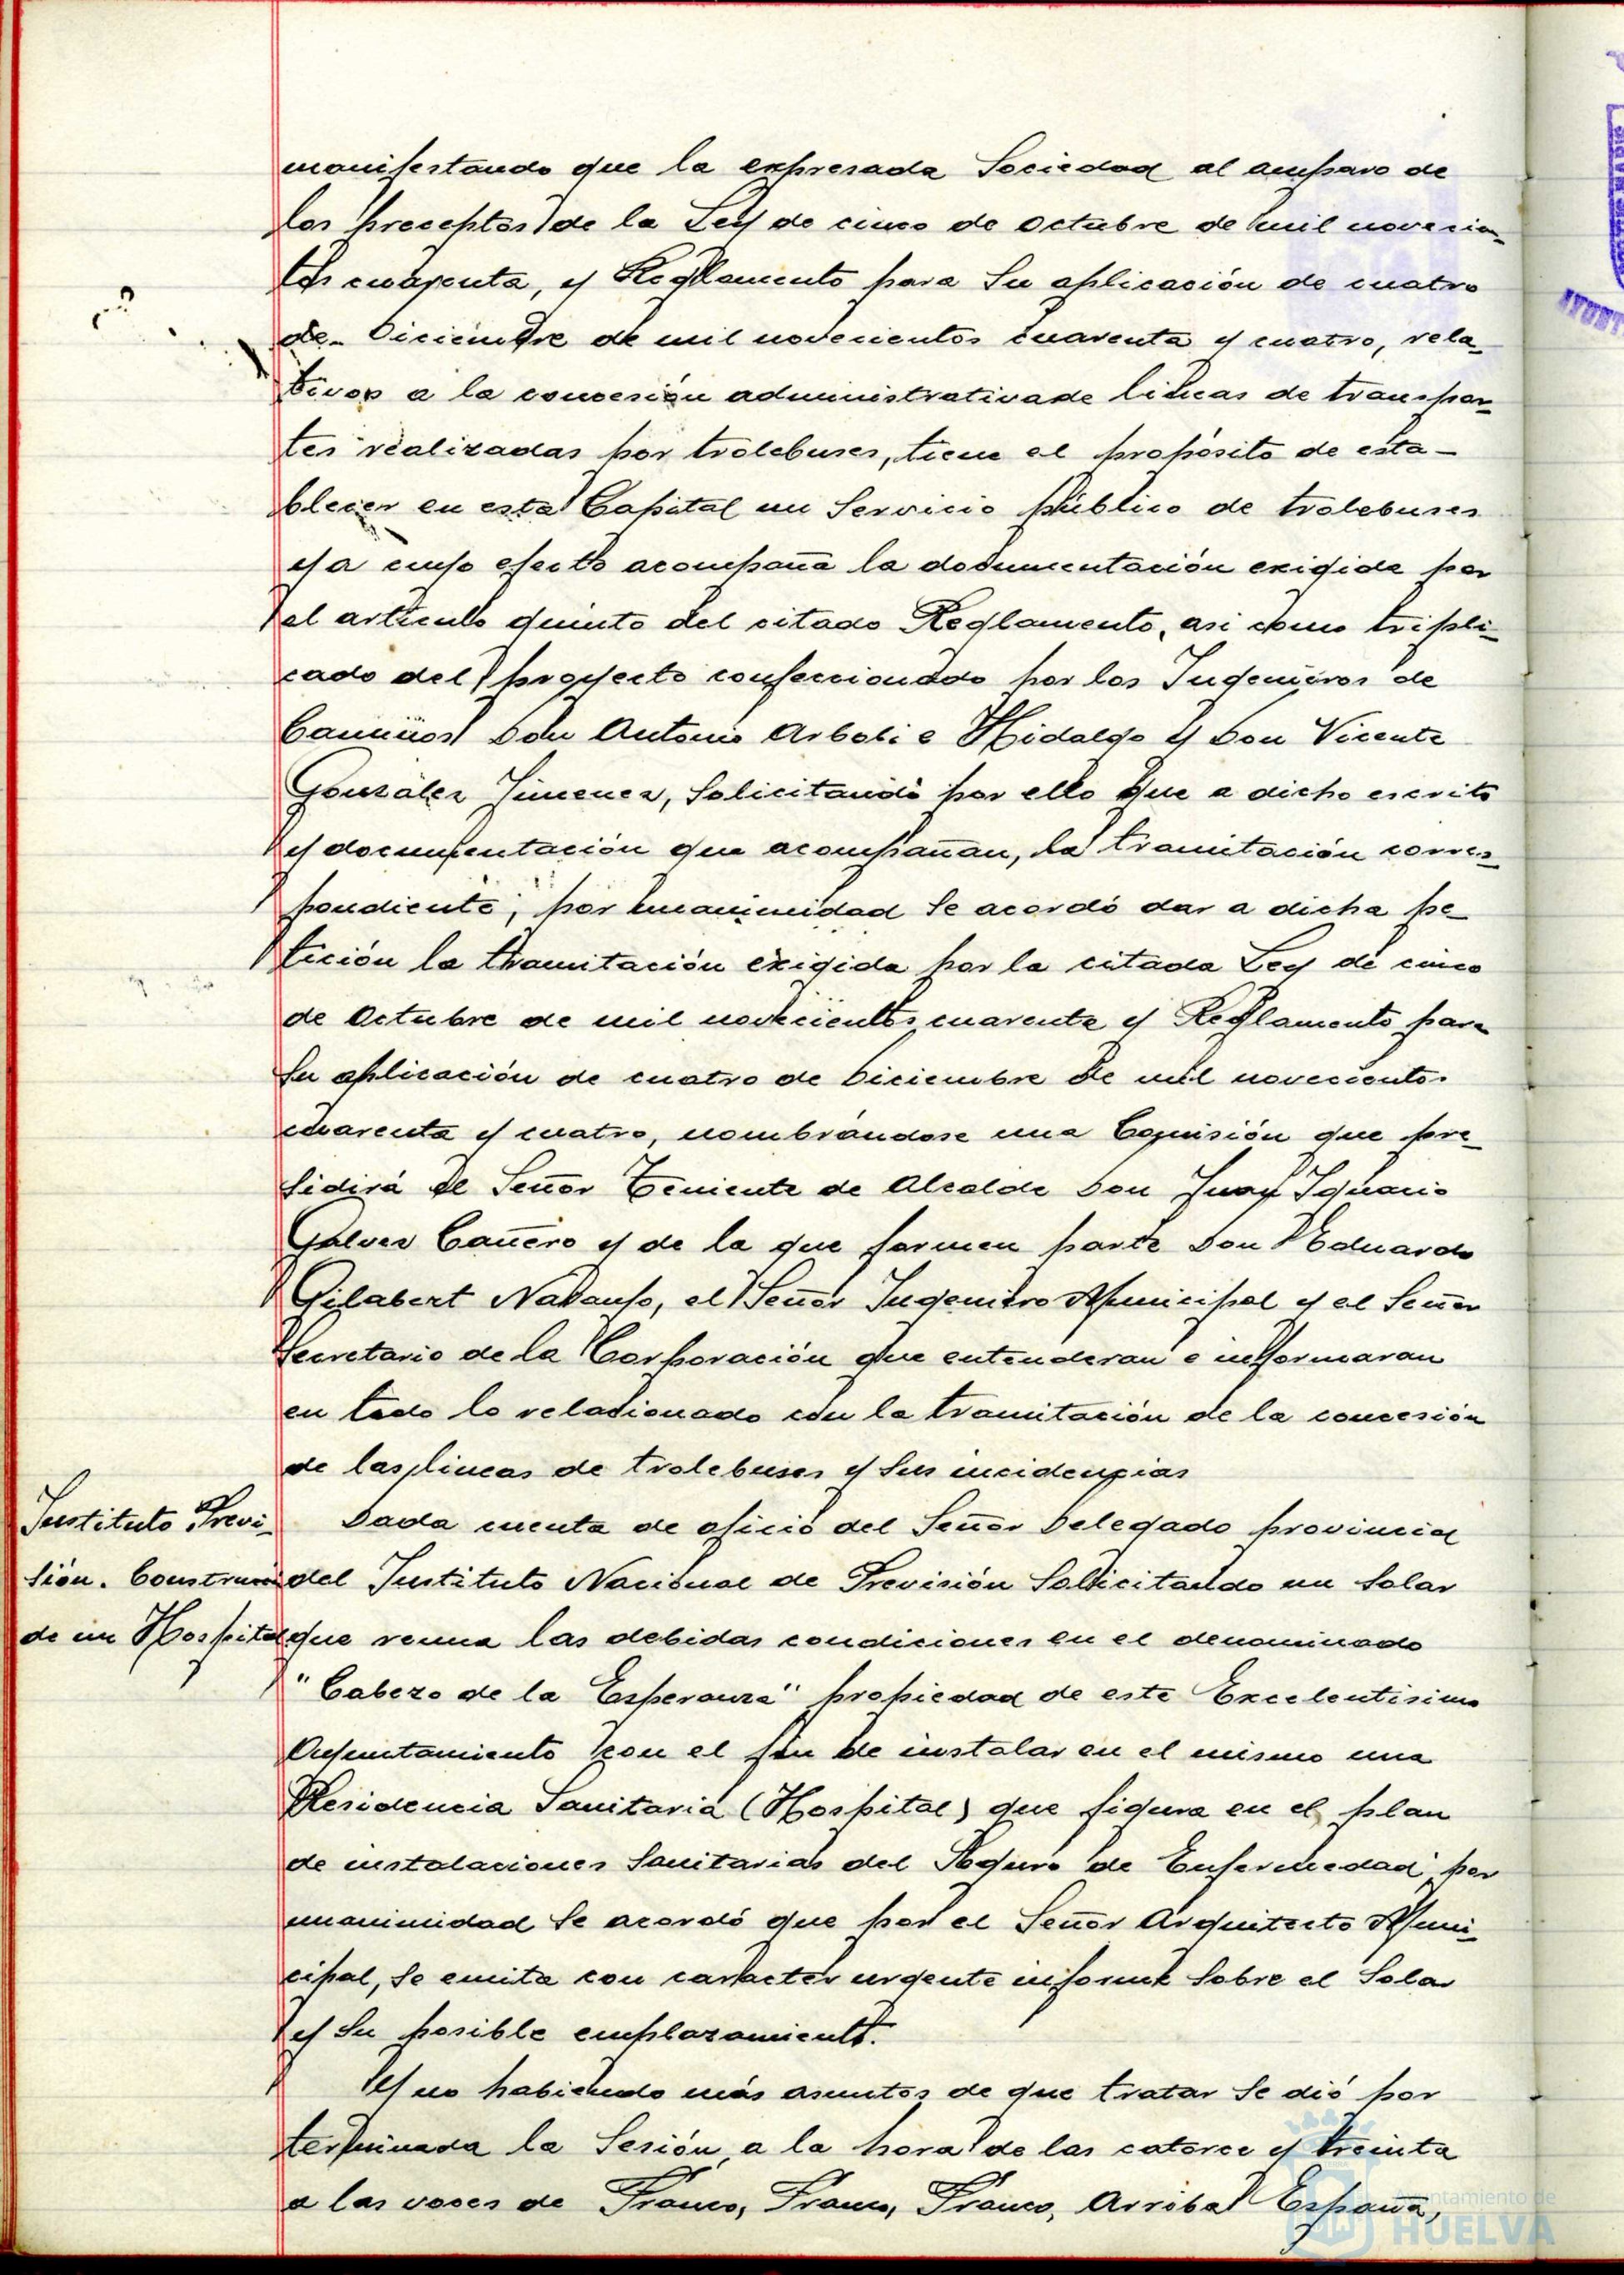 manifestando que la expresada Sociedad al amparo de
los preceptos de la Ley de cinco de Octubre de mil novecien-
tos cuarenta, y Reglamento para su aplicación de cuatro
de Diciembre de mil novecientos cuarenta y cuatro, rela-
tivos a la concesión administrativa de lineas de transpor-
tes realizadas por trolebuses, tiene el propósito de esta-
blecer en esta Capital un Servicio público de trolebuses
y a cuyo efecto acompaña la documentación exigida por
el artículo quinto del citado Reglamento, asi como tripli-
cado del proyecto confeccionado por los Ingenieros de
Caminos Don Antonio Arboli e Hidalgo y Don Vicente
González Jimenez, Solicitando por ello que a dicho escrito
y documentación que acompañan, la tramitación corres-
pondiente; por unanimidad se acordó dar a dicha pe-
tición la tramitación exigida por la citada Ley de cinco
de Octubre de mil novecientos cuarenta y Reglamento para
su aplicación de cuatro de Diciembre de mil novecientos
cuarenta y cuatro, nombrándose una Comisión que pre-
sidirá el Señor Teniente de Alcalde Don Juan Ignacio
Galvez Cañero y de la que formen parte Don Eduardo
Gilabert, el Señor Ingeniero Municipal y el Señor
Secretario de la Corporación que entenderan e informaran
en todo lo relacionado con la tramitación de la concesión
de las lineas de trolebuses y sus incidencias
Instituto Previ-
sión. Construcción
de un Hospital
Dada cuenta de oficio del Señor Delegado provincial
del Instituto Nacional de Previsión Solicitando un solar
que reuna las debidas condiciones en el denominado
"Cabezo de la Esperanza" propiedad de este Excelentisimo
Ayuntamiento con el fin de instalar en el mismo una
Residencia Sanitaria (Hospital) que figura en el plan
de instalaciones Sanitarias del Seguro de Enfermedad por
unanimidad se acordó que por el Señor Arquitecto Muni-
cipal, se emita con caracter urgente informe sobre el Solar
y su posible emplazamiento.
Y no habiendo más asuntos de que tratar se dió por
terminada la Sesión a la hora de las catorce y treinta
a las voces de Franco, Franco, Franco, Arriba España,
Ayuntamiento de
HUELVA